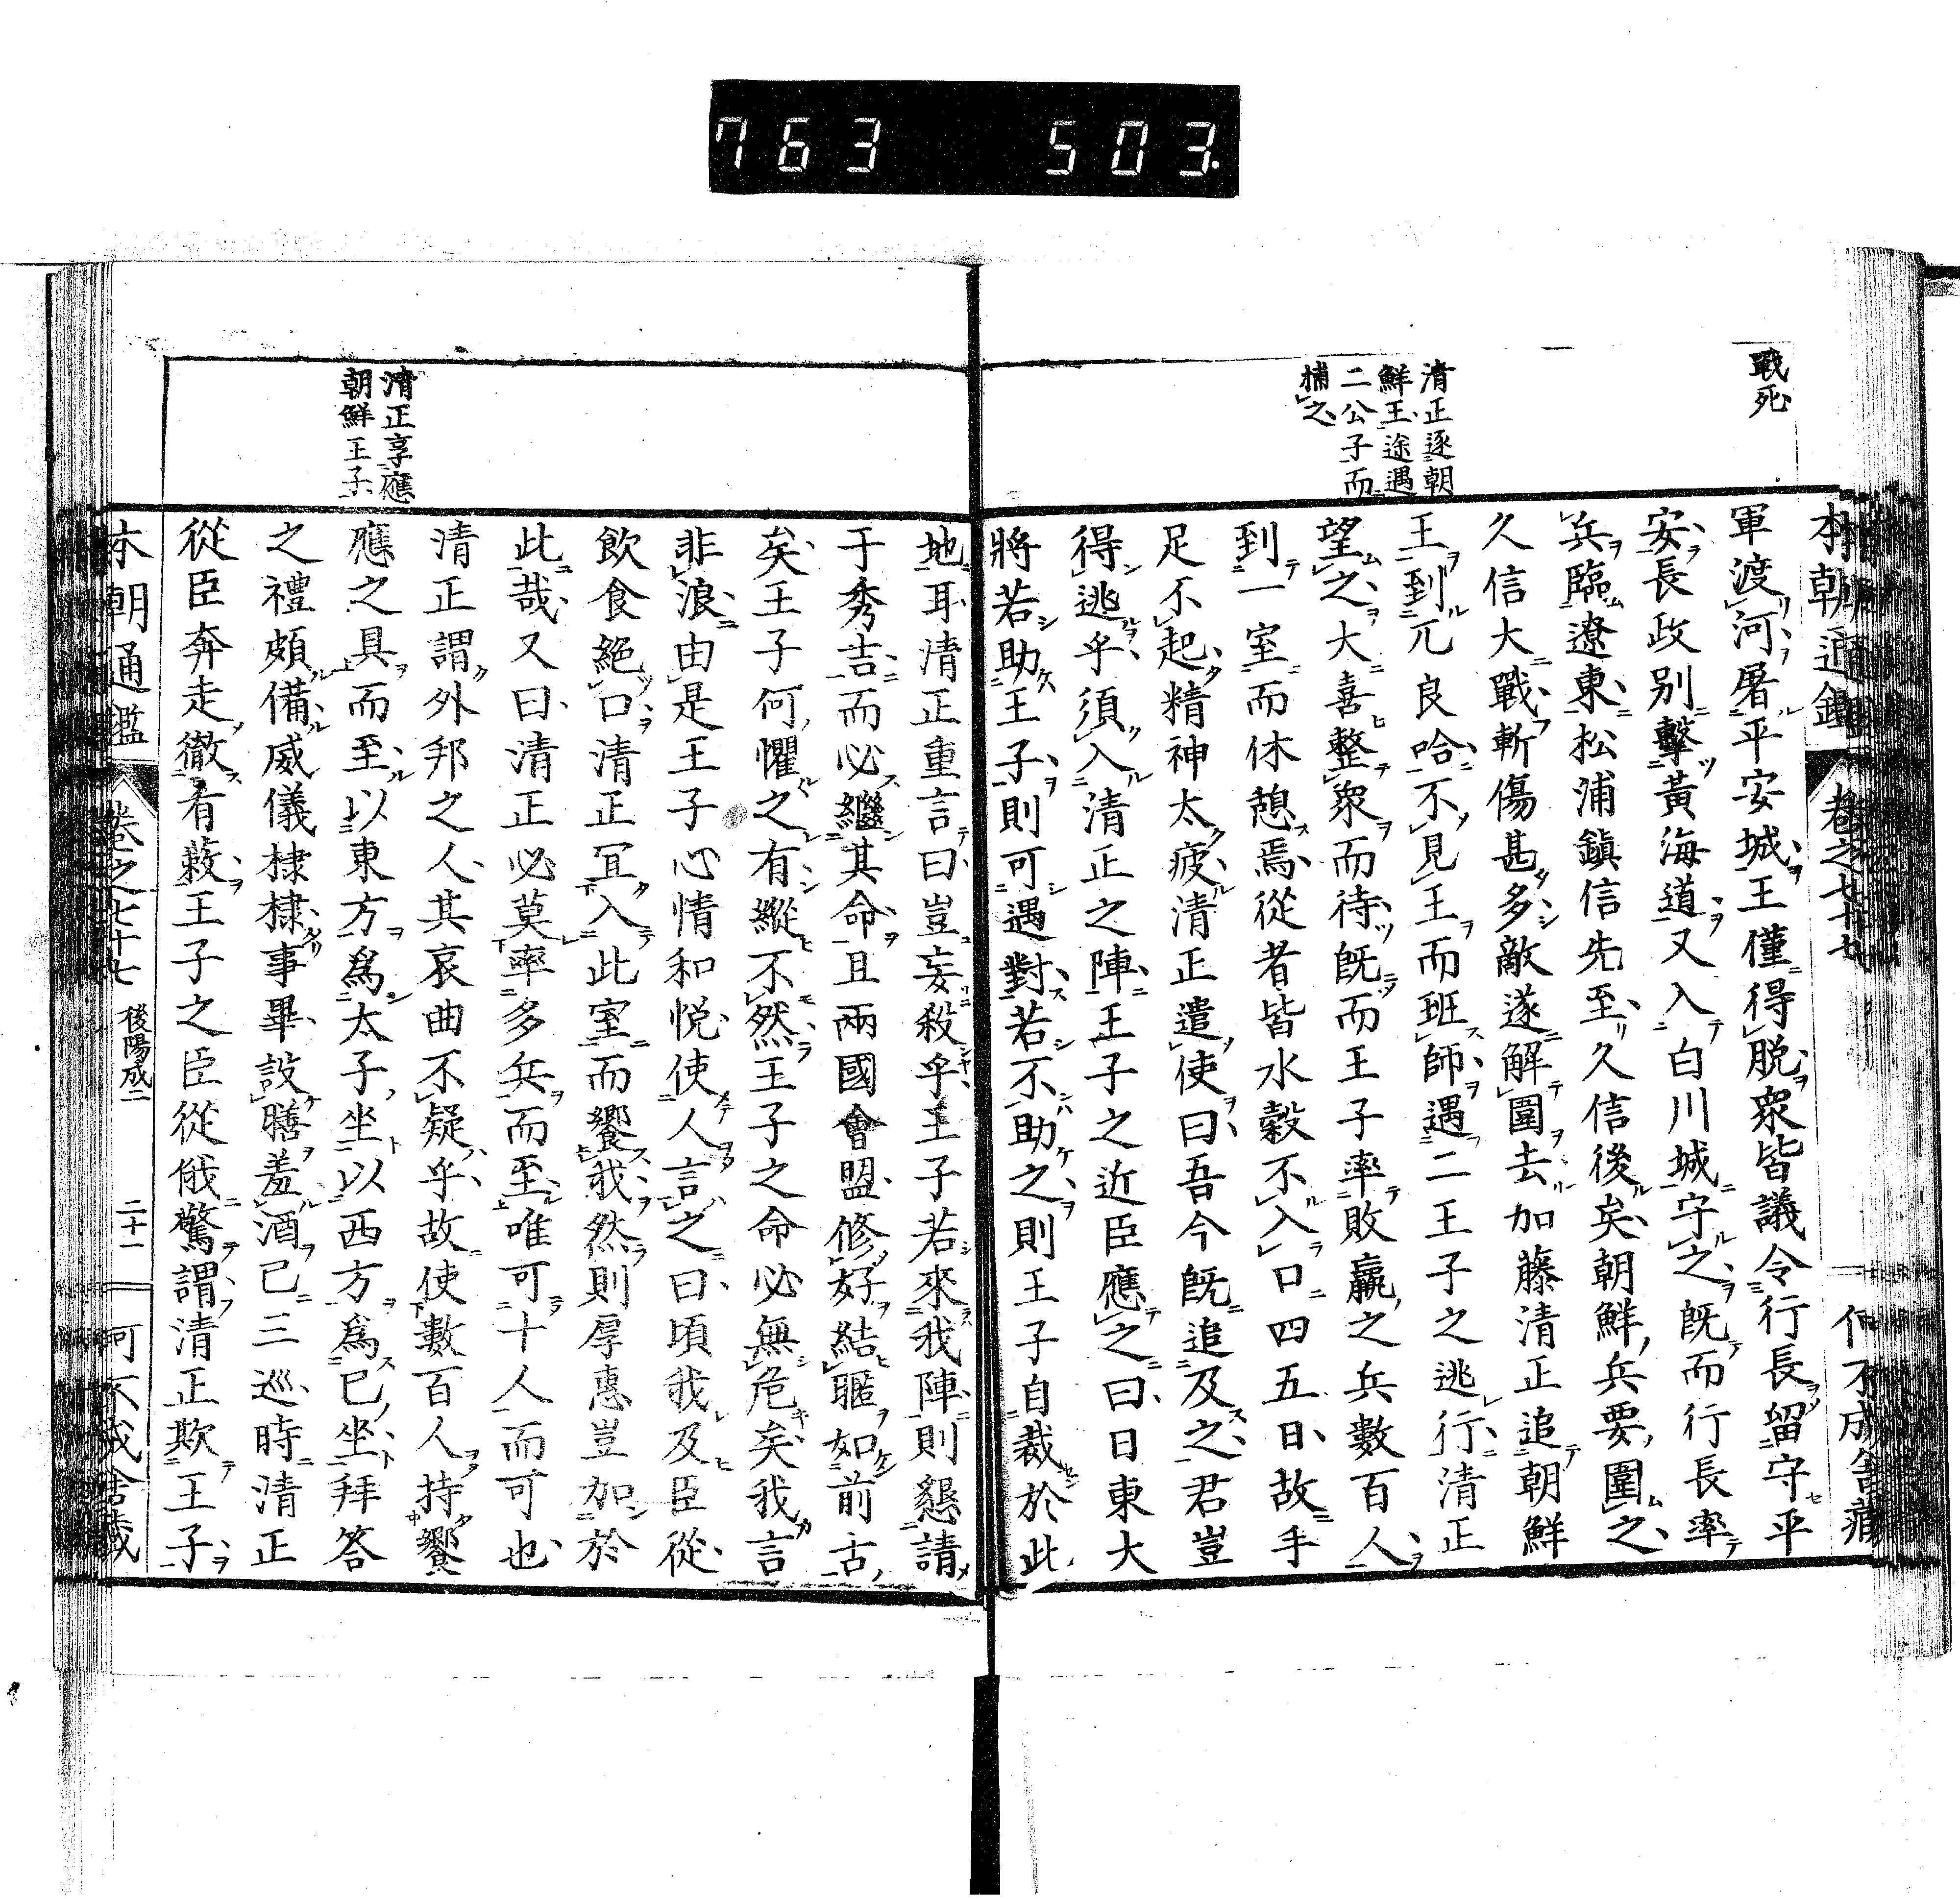 763 503.
戰死
清正逐朝
鮮王途遇
二公子而
捕之
本朝通鑑 卷之七十七
軍渡河屠平安城王僅得脱衆皆議令行長留守平
安長政別擊黃海道又入白川城守之既而行長率
兵臨遼東松浦鎭信先至久信後矣朝鮮兵要圍之
久信大戰斬傷甚多敵遂解圍去加藤清正追朝鮮
王到兀良哈不見王而班師遇二王子之逃行清正
望之大喜整衆而待既而王子率敗羸之兵數百人
到一室而休憩焉從者皆水穀不入口四五日故手
足不起精神太疲清正遣使曰吾今既追及之君豈
得逃乎須入清正之陣王子之近臣應之曰日東大
將若助王子則可遇對若不助之則王子自裁於此
清正享應
朝鮮王子
地耳清正重言曰豈妄殺乎王子若來我陣則懇請
于秀吉而必繼其命且兩國會盟修好結暱如前古
矣王子何懼之有縱不然王子之命必無危矣我言
非浪由是王子心情和悦使人言之曰頃我及臣從
飲食絶口清正冝入此室而饗我然則厚惠豈加於
此哉又曰清正必莫率多兵而至唯可十人而可也
清正謂外邦之人其哀曲不疑乎故使數百人持饗
應之具而至以東方爲太子坐以西方爲己坐拜答
之禮頗備威儀棣棣事畢設膳羞酒已三巡時清正
從臣奔走徹有蔌王子之臣從俄驚謂清正欺王子
本朝通鑑 卷之七十七 後陽成二 二十一